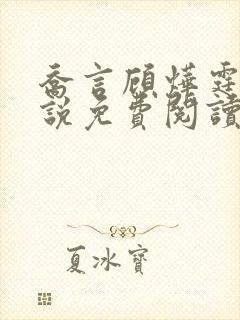 喬言顧燁霆
說免費閱讀
夏冰寶